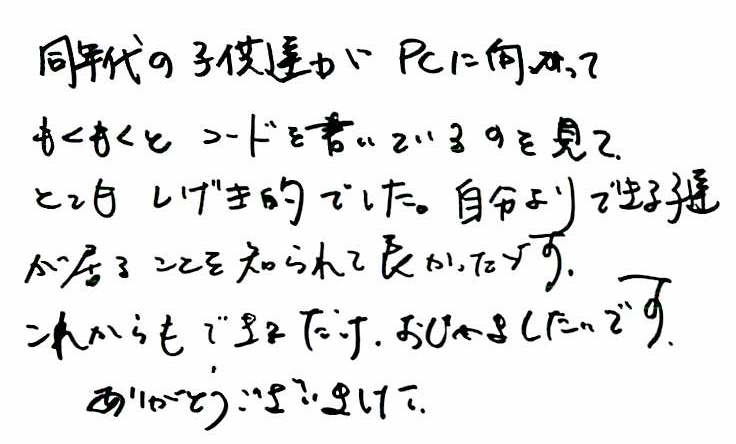 同年代の子供達が PCに向かって
もくもくと コードを書いているのを見て、
とても しげき的でした。自分よりできる子達
が居ることを知られて良かったです。
これからもできるだけ、おじゃましたいです。
ありがとうございました。